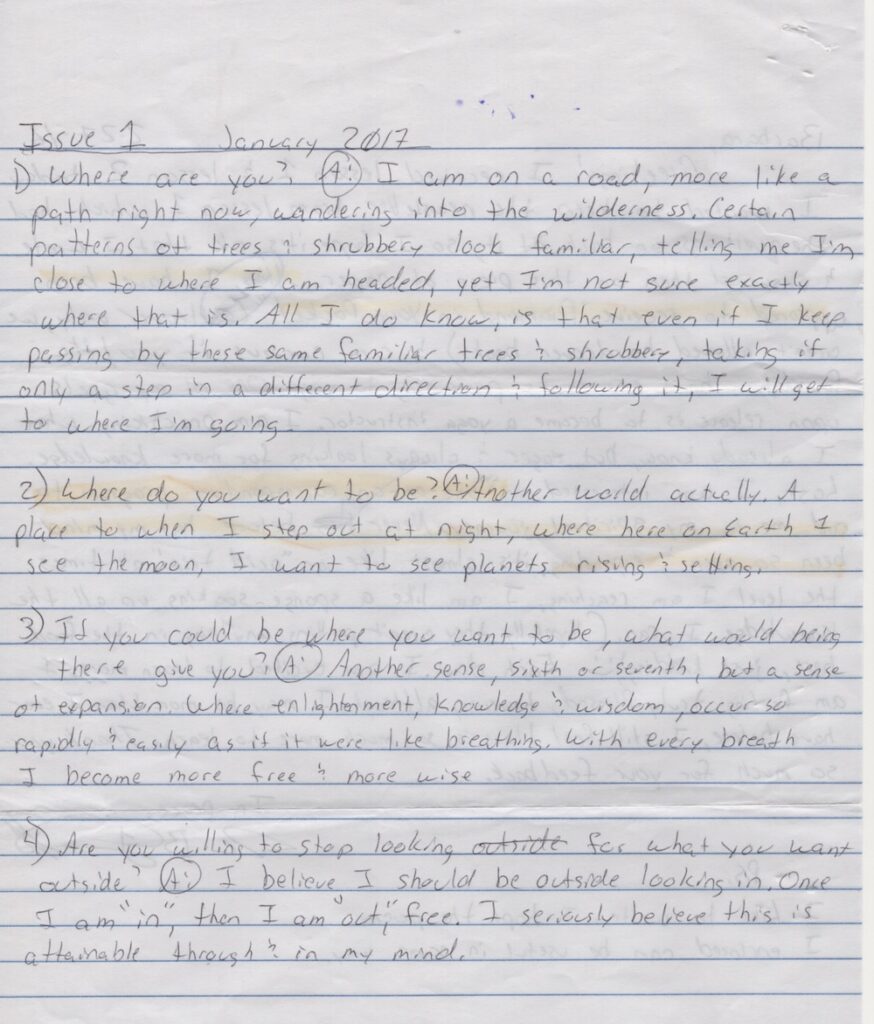 Issue 1 January 2017
1) Where are you? A: I am on a road, more like a
path right now, wandering into the wilderness. Certain
patterns of trees & shrubbery look familiar, telling me I'm
close to where I am headed, yet I'm not sure exactly
where that is. All I do know, is that even if I keep
passing by these same familiar trees & shrubbery, taking if
only a step in a different direction, & following it, I will get
to where I'm going.
2) Where do you want to be? A: Another world actually. A
place to when I step out at night, where here on Earth I
see the moon, I want to see planets rising & setting.
3) If you could be where you want to be, what would being
there give you? A: Another sense, sixth or seventh, but a sense
of expansion. Where enlightenment, knowledge & wisdom, occur so
rapidly & easily as if it were like breathing. With every breath
I become more free & more wise
4) Are you willing to stop looking outside for what you want
outside? A: I believe I should be outside looking in. Once
I am "in", then I am "out", free. I seriously believe this is
attainable through & in my mind.